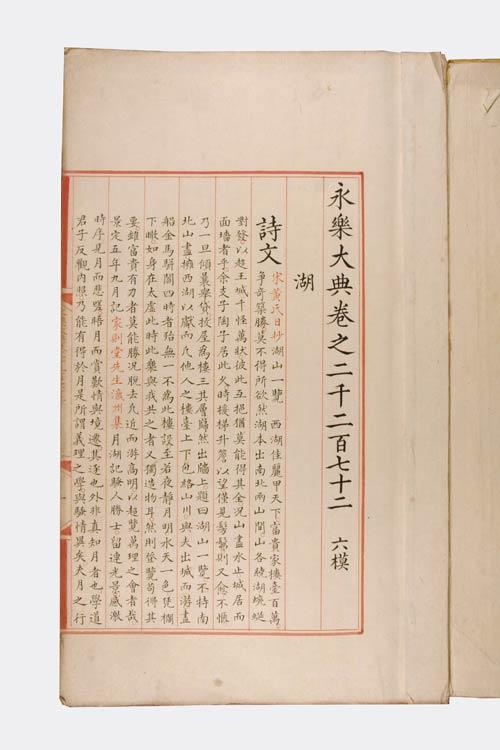 永樂大典卷之二千二百七十二 六模
湖
詩文 宋黃氏日抄湖山一覽 西湖佳麗甲天下富貴家樓臺百萬
爭奇築勝莫不得所欲然湖本出南北兩山間山各繞湖蜿蜒
對發以趨王城千怪萬狀彼此互挹猶莫能得其全况山盡水止城居而
面墻者乎余支子陶子居此久時接梯升簷以望僅見髣髴則又愈不愜
乃一旦傾囊舉貸屋為樓三其層巋然出墻上題曰湖山一覽不特南
北山盡擁西湖以獻而凡他人之樓臺上下包絡山川與夫出城而游畫
船金馬駢闐四時者殆無一不為此樓設至若夜靜月明水天一色凭欄
下瞰如身在太虛此時此樂與我共之者又獨造物耳然則登覽苟得其
要雖富貴有力者莫能勝况脫去凡近而游高明以超覽萬理之會者哉
景定五年九月記家則堂先生瀛州集月湖記騷人勝士留連光景感激
時序見月而悲晤月而賞歡情與境遷其逐也外非真知月者也學道
君子反觀內照乃能有得於月是所謂義理之學與騷情異矣夫月之行